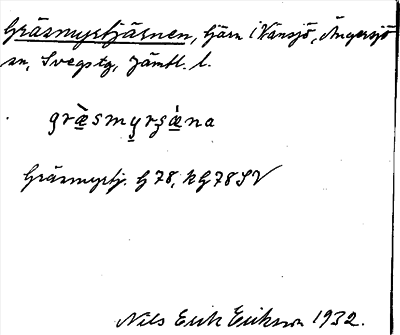 Gräsmyrtjärnen, tjärn i Vänsjö, Ängersjö
sn, Svegstg, Jämtl. l.
græ̀smyrʂæ̀na
Gräsmyrtj. G 78, k G 78 SV
Nils Erik Erikson 1932.